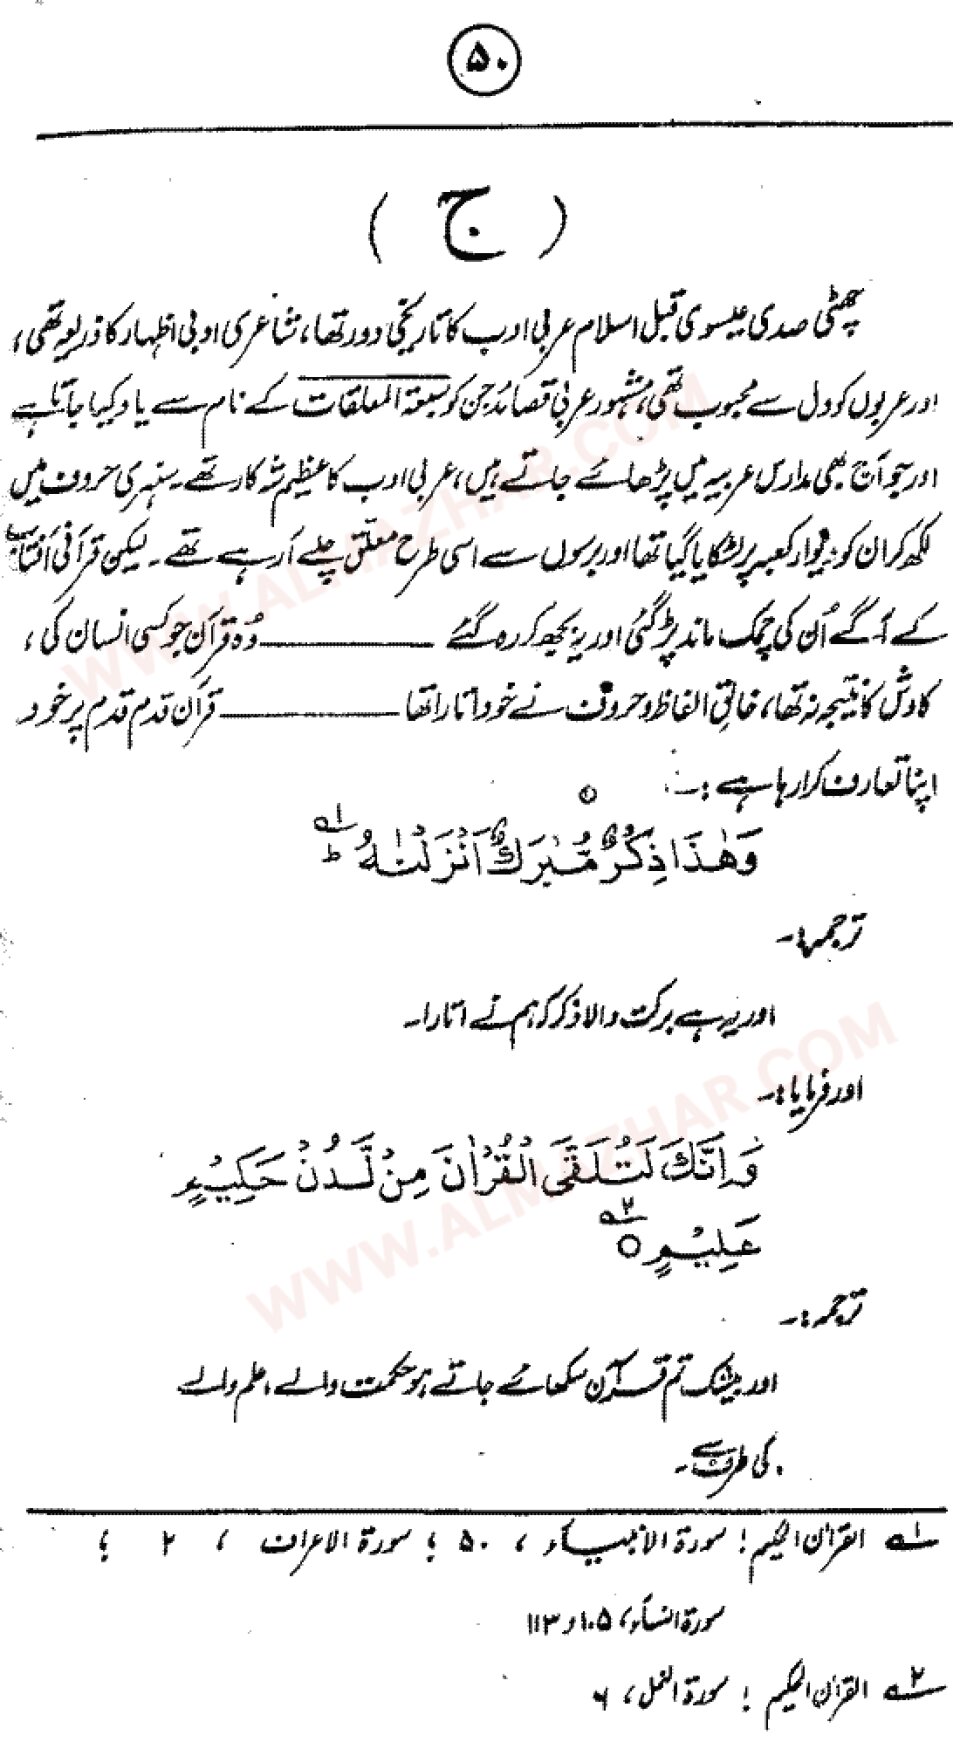 ۵۰
( ج )
چھٹی صدی عیسوی قبل اسلام عربی ادب کا تاریخی دور تھا، شاعری ادبی اظہار کا ذریعہ تھی،
اور عربوں کو دل سے محبوب تھی، مشہور عربی قصائد جن کو سبعۃ المعلقات کے نام سے یاد کیا جاتا ہے
اور جو آج بھی مدارس عربیہ میں پڑھائے جاتے ہیں، عربی ادب کا عظیم شہ کار تھے۔ سنہری حروف میں
لکھ کر ان کو دیوار کعبہ پر لٹکایا گیا تھا اور برسوں سے اسی طرح معلّق چلے آ رہے تھے۔ لیکن قرآنی آفتاب
کے آگے اُن کی چمک ماند پڑ گئی اور یہ بجھ کر رہ گئے ــــــــــ وُہ قرآن جو کسی انسان کی،
کاوش کا نتیجہ نہ تھا، خالقِ الفاظ و حروف نے خود اتارا تھا ــــــــــ قرآن قدم قدم پر خود
اپنا تعارف کرا رہا ہے :۔
وَهٰذَا ذِكْرٌ مُّبٰرَكٌ اَنْزَلْنٰهُ ؕ ۱؎
ترجمہ:۔
اور یہ ہے برکت والا ذکر کہ ہم نے اتارا۔
اور فرمایا:۔
وَ اِنَّكَ لَتُلَقَّى الْقُرْاٰنَ مِنْ لَّدُنْ حَكِيْمٍ
عَلِيْمٍ ۝ ۲؎
ترجمہ:۔
اور بیشک تم قرآن سکھائے جاتے ہو حکمت والے، علم والے
کی طرف سے۔
۱؎ القرآن الحکیم ؛ سورۃ الانبیاء ، ۵۰ ؛ سورۃ الاعراف ، ۲ ؛
سورۃ النساء، ۱۰۵ و ۱۱۳
۲؎ القرآن الحکیم ؛ سورۃ النمل ، ۶
WWW.ALMAZHAR.COM
WWW.ALMAZHAR.COM